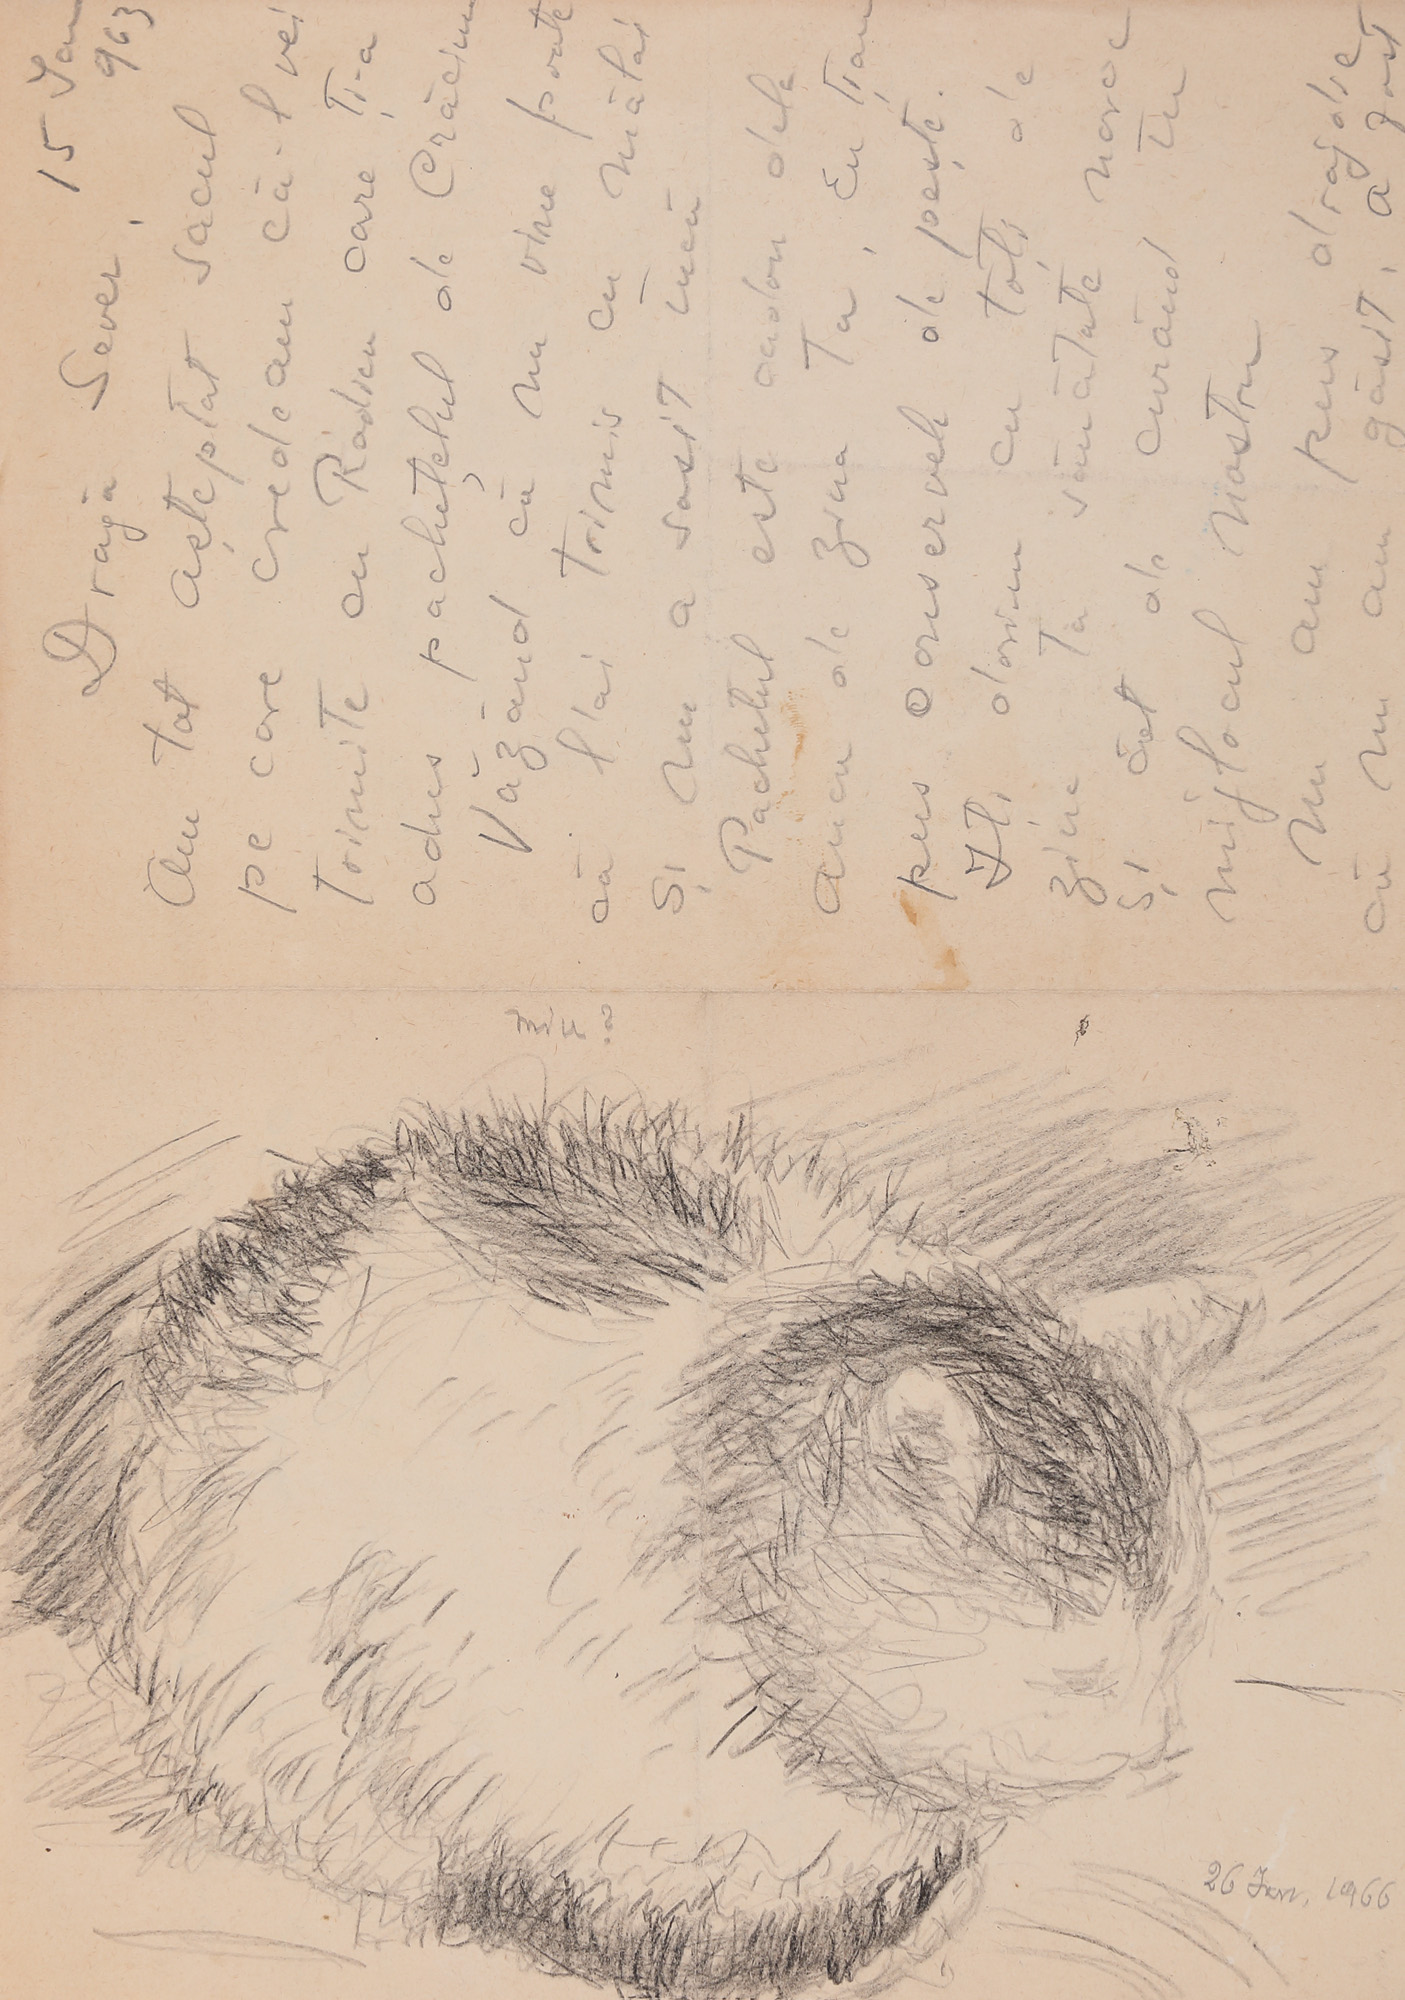 15 Ian
963
Dragă Sever,
Am tot așteptat sacul
pe care credeam că-l vei
trimite cu Radicu care ți-a
adus pachețelul de Crăciun
Văzând că nu vine poate
că l'ai trimis cu
Și nu a sosit încă
Pachetul este cadou dela
de ziua ta, ți-am
pus conserve de pește.
Iți dorim cu toți de
ziua ta sănătate noroc
Și cât de curând în
mijlocul nostru
Nu am pus drajdie
că nu am găsit, a fost
26 Ian. 1966